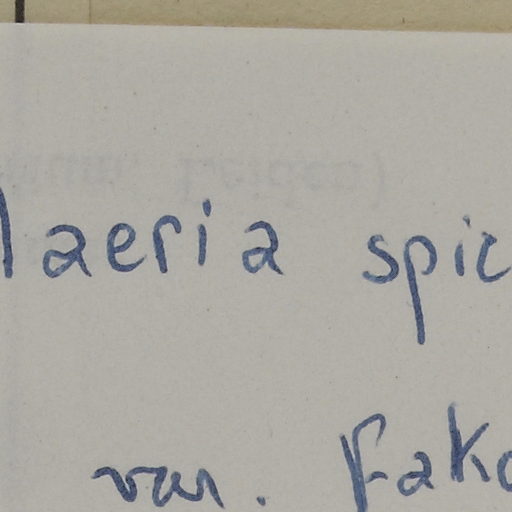 laeria spic
var. Fako